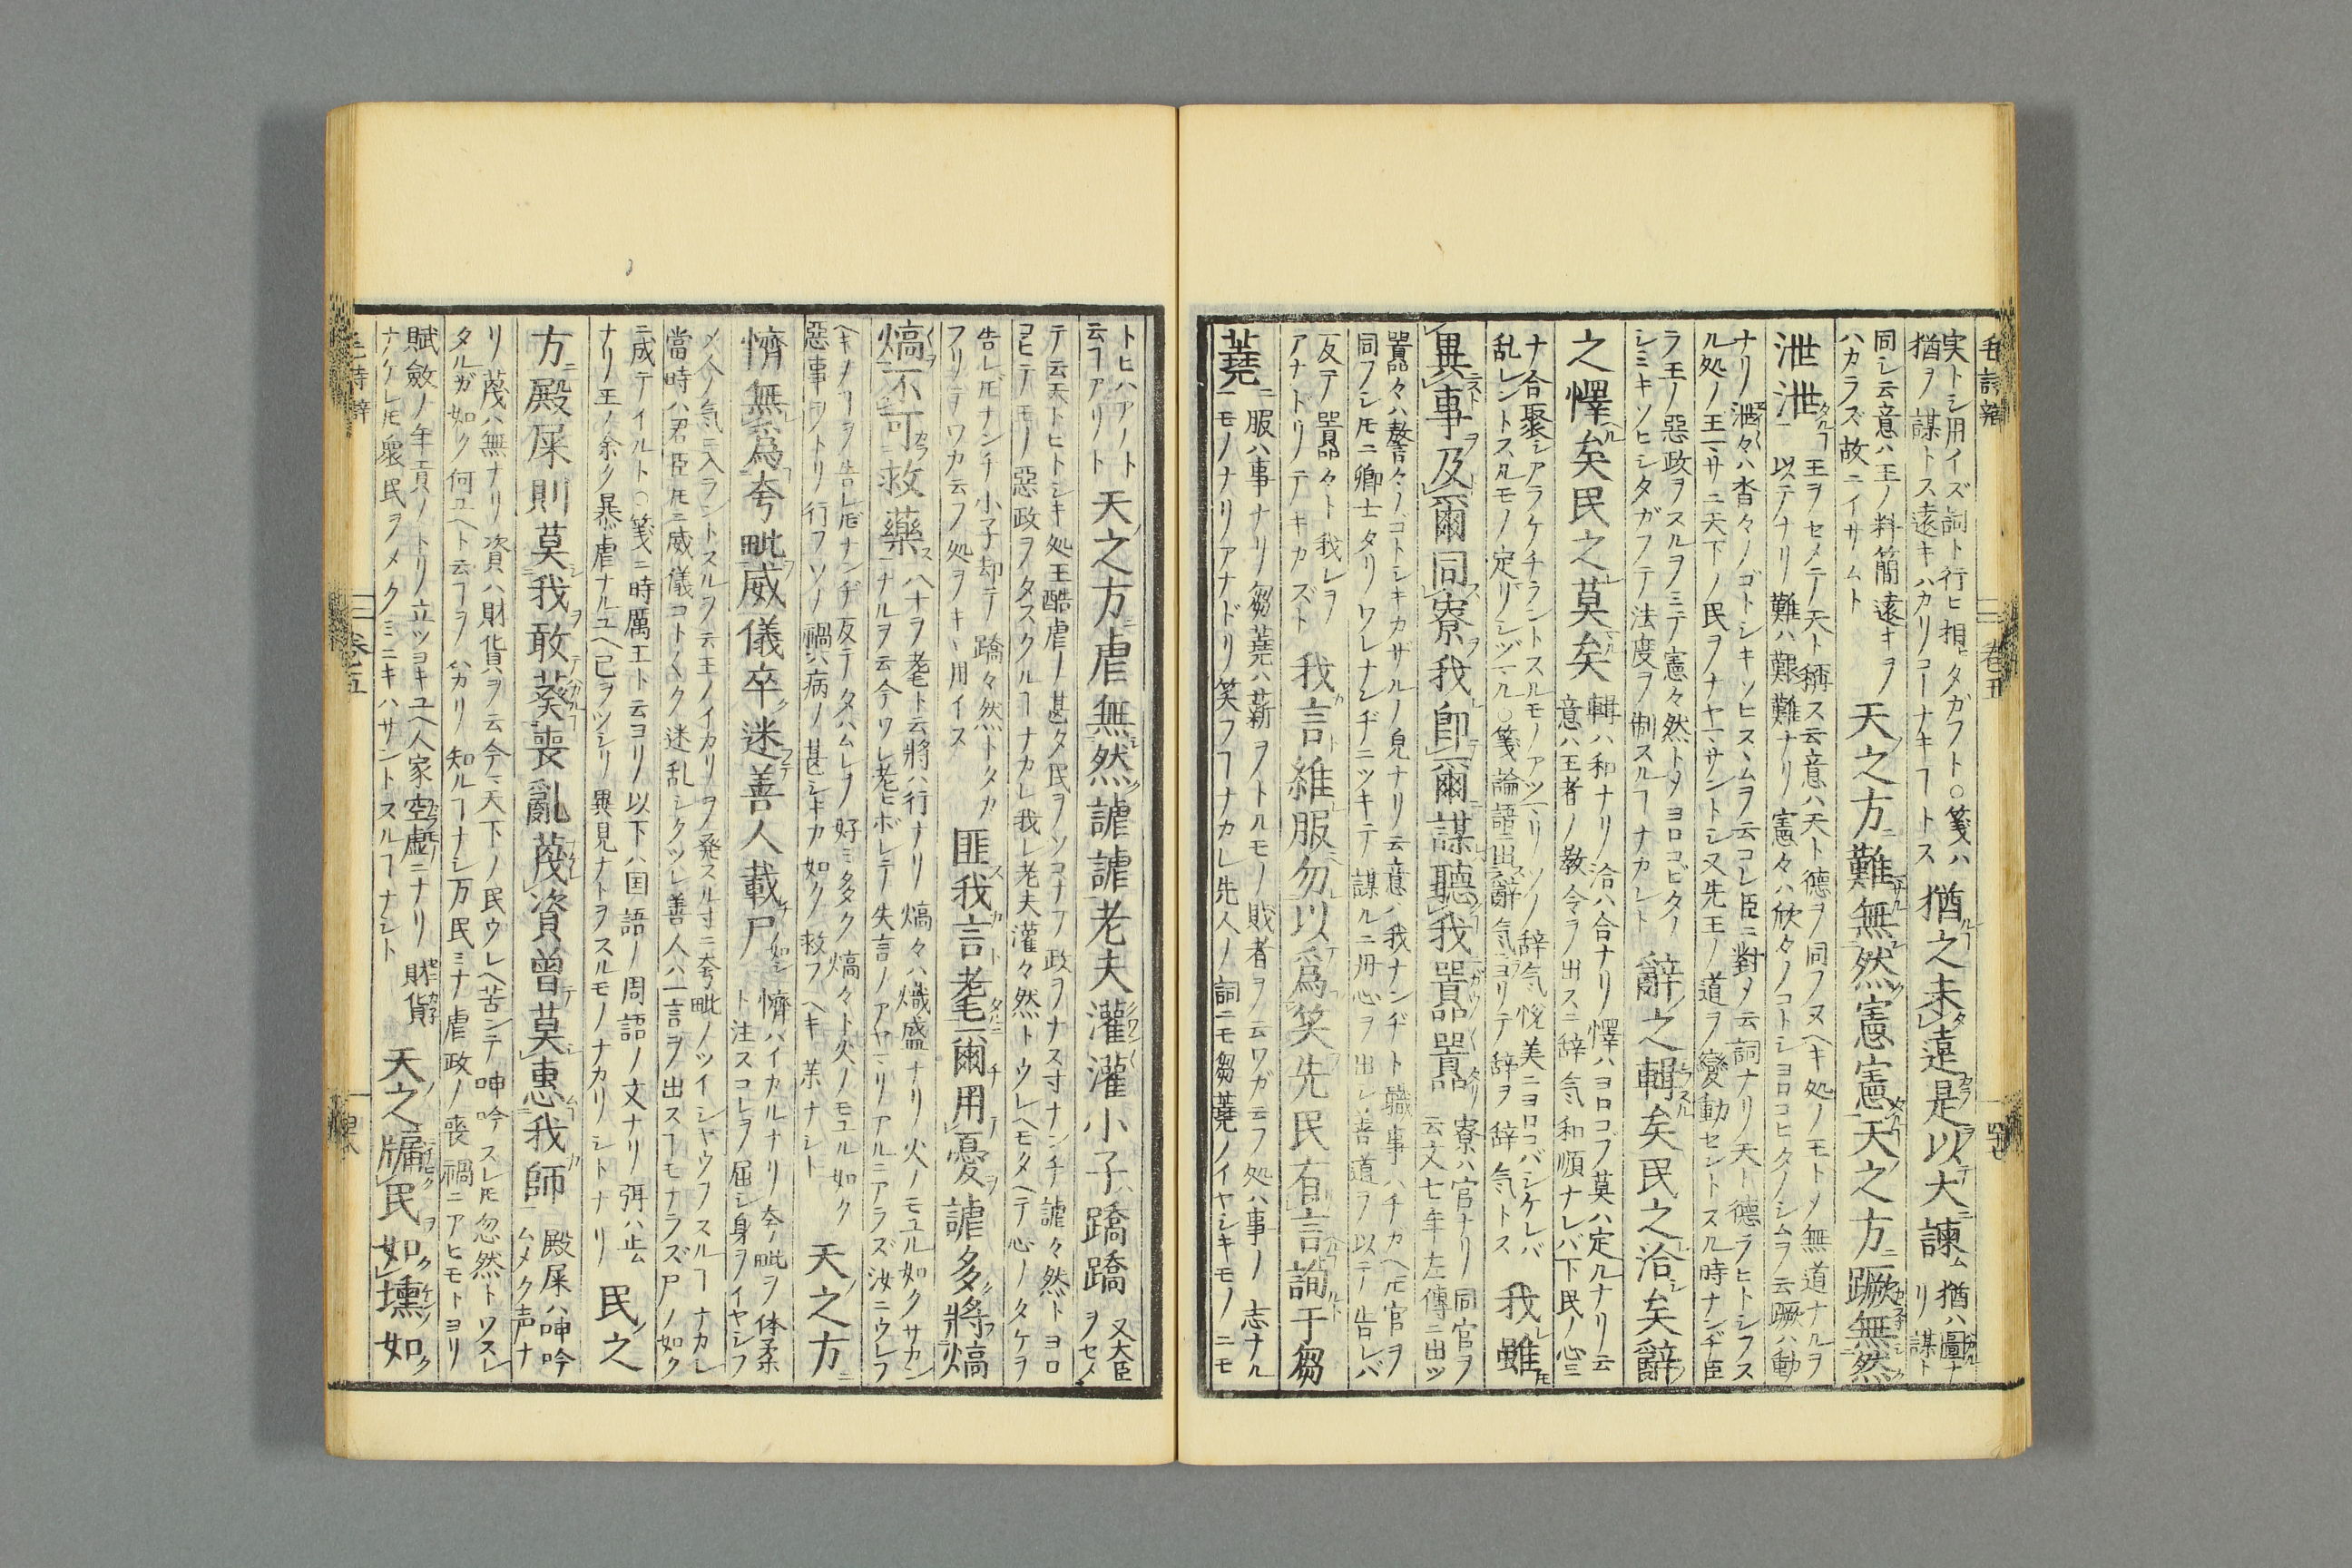 実トシ用イズ詞ト行ヒ相ヒタガフト○箋ハ
猶ヲ謀トス遠キハカリコーナキヿトス
猶之未遠是以大諫
猶ハ圖ナ
リ謀ト
同シ云意ハ王ノ料簡遠キヲ
ハカラズ故ニイサムト
天之方難無然憲憲天之方蹶無然
泄泄
王ヲセメテノ天ト稱ス云意ハ天ト德ヲ同フヌヘキ処ノモトメ無道ナルヲ
以テナリ難ハ艱難ナリ憲々ハ欣々ノコトシヨロコヒタノシムヲ云蹶ハ動
ナリ泄々ハ沓々ノゴトシキソヒスヽムヲ云コレ臣ニ對メ云詞ナリ天ト德ヲヒトシフス
ル処ノ王マサニ天下ノ民ヲナヤマサントシ又先王ノ道ヲ變動セントスル時ナンヂ臣
ラ王ノ惡政ヲスルヲミテ憲々然トメヨロコビタノ
シミキソヒシタガフテ法度ヲ制スルヿナカレト
辭之輯矣民之洽矣辭
之懌矣民之莫矣
輯ハ和ナリ洽ハ合ナリ懌ハヨロコブ莫ハ定ルナリ云
意ハ王者ノ教令ヲ出スニ辞気和順ナレバ下民ノ心ミ
ナ合聚シアラケチラントスルモノアツマリソノ辞気悅美ニヨロコバシケレバ
乱レントスルモノ定リシヅマル○箋論語ニ出辭気ヨリテ辞ヲ辞気トス
我雖
異事及爾同寮我卽爾謀聽我囂囂
寮ハ官ナリ同官ヲ
云文七年左傳ニ出ツ
囂々ハ謷々ノゴトシキカザルノ皃ナリ云意ハ我ナンヂト職事ハチカヘ𪜈官ヲ
同フシ𪜈ニ卿士タリワレナンヂニツキテ謀ルニ丹心ヲ出シ善道ヲ以テ告レバ
反テ囂々ト我レヲ
アナドリテキカズト
我言維服勿以爲笑先民有言詢于芻
蕘
服ハ事ナリ芻蕘ハ薪ヲトルモノ賎者ヲ云ワガ云フ処ハ事ノ志ナル
モノナリアナドリ笑フヿナカレ先人ノ詞ニモ芻蕘ノイヤシキモノニモ
トヒハアノト
云ヿアリト
天之方虐無然謔謔老夫灌灌小子蹻蹻
又大臣
ヲセメ
テ云天トヒトシキ処王酷虐ノ甚タ民ヲソコナフ政ヲナス寸ナンチ謔々然トヨロ
コヒテモノ惡政ヲタスクルヿナカレ我レ老夫灌々然トウレヘモタヘテ心ノタケヲ
告レ𪜈ナンチ小子却テ蹻々然トタカ
フリテワカ云フ処ヲキヽ用イス
匪我言耄爾用憂謔多將熇
熇不可救藥
八十ヲ耄ト云將ハ行ナリ熇々ハ熾盛ナリ火ノモユル如クサカン
ナルヲ云今ワレ老ヒボレテ失言ノアヤマリアルニアラズ汝ニウレフ
ヘキヿヲ告レ𪜈ナンヂ反テタハムレヲ好ミ多ク熇々ト火ノモユル如ク
惡事ヲトリ行フソノ禍ハ病ノ甚シキカ如ク救フヘキ薬ナシト
天之方
懠無爲夸毗威儀卒迷善人載尸
懠ハイカルナリ夸毗ヲ体柔
ト注スコレヲ屈シ身ヲイヤシフ
メ人ノ気ニ入ラントスルヲ云王ノイカリヲ発スル寸ニ夸毗ノツイシヤウヲスルヿナカレ
當時ハ君臣𪜈ニ威儀コト〱ク迷乱シクツレ善人ハ一言ヲ出スヿモナラズ尸ノ如ク
ニ成テイルト○箋ニ時厲王ト云ヨリ以下ハ国語ノ周語ノ文ナリ弭ハ止ム
ナリ王ノ余ク暴虐ナルユヘ已ヲツシリ異見ナトヲスルモノナカリシトナリ
民之
方殿屎則莫我敢葵喪亂蔑資曾莫惠我師
殿屎ハ呻吟
ムメク声ナ
リ蔑ハ無ナリ資ハ財貨ヲ云今天下ノ民ウレヘ苦ンテ呻吟スレ𪜈忽然トワスレ
タルガ如ク何ユヘト云ヿヲハカリ知ルヿナシ万民ミナ虐政ノ喪禍ニアヒモトヨリ
賦斂ノ年貢ノトリ立ツヨキユヘ人家空虚ニナリ財貨
ナケレ𪜈衆民ヲメクミニキハサントスルヿナシト
天之牖民如壎如